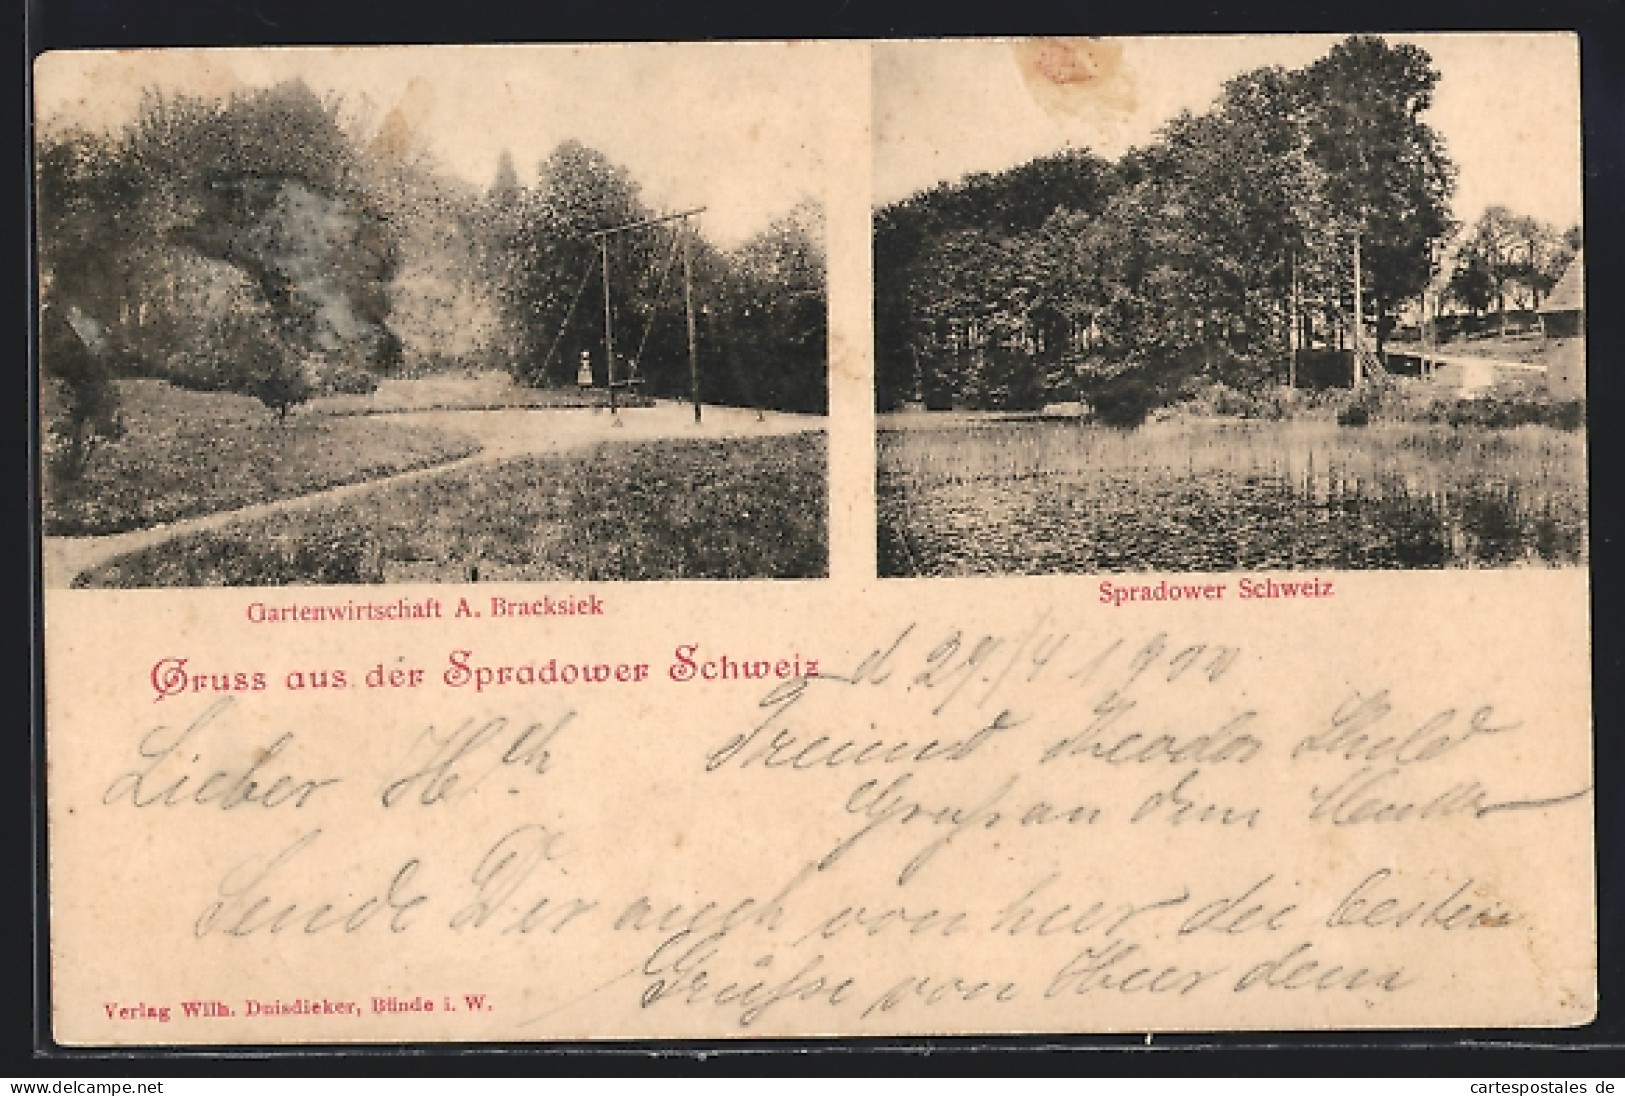 Gartenwirtschaft A. Bracksiek
Spradower Schweiz
Gruss aus der Spradower Schweiz
d 29./4 1900
Lieber
Freund Theodor
Gruß an dem
Sende Dir auch von hier die besten
Grüße von
Verlag Wilh. Dnisdieker, Bünde i. W.
www.delcampe.net
cartespostales de